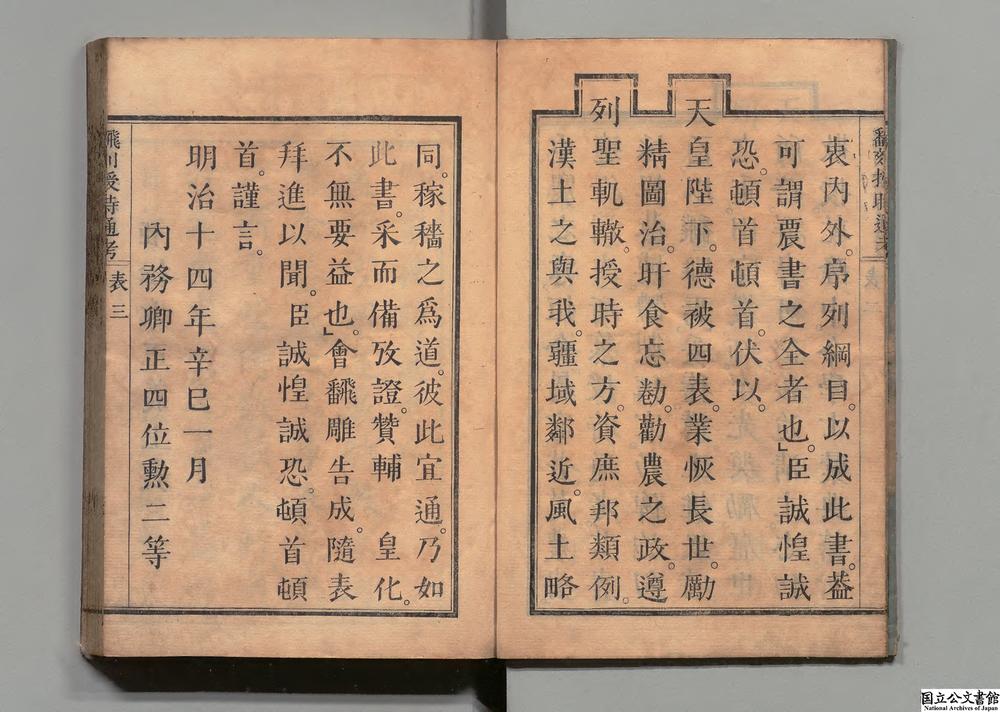 衷內外。序列綱目。以成此書。葢
可謂農書之全者也。」臣誠惶誠
恐。頓首頓首。伏以。
天皇陛下。德被四表。業恢長世。勵
精圖治。旰食忘勌。勸農之政。遵
列聖軌轍。授時之方。資庶邦類例。
漢土之與我。疆域鄰近。風土略
同。稼穡之爲道。彼此宜通。乃如
此書。采而備攷證。贊輔　皇化。
不無要益也。」會飜雕告成。隨表
拜進以聞。臣誠惶誠恐。頓首頓
首。謹言。
明治十四年辛巳一月
內務卿正四位勳二等
飜刻授時通考
表三
国立公文書館
National Archives of Japan